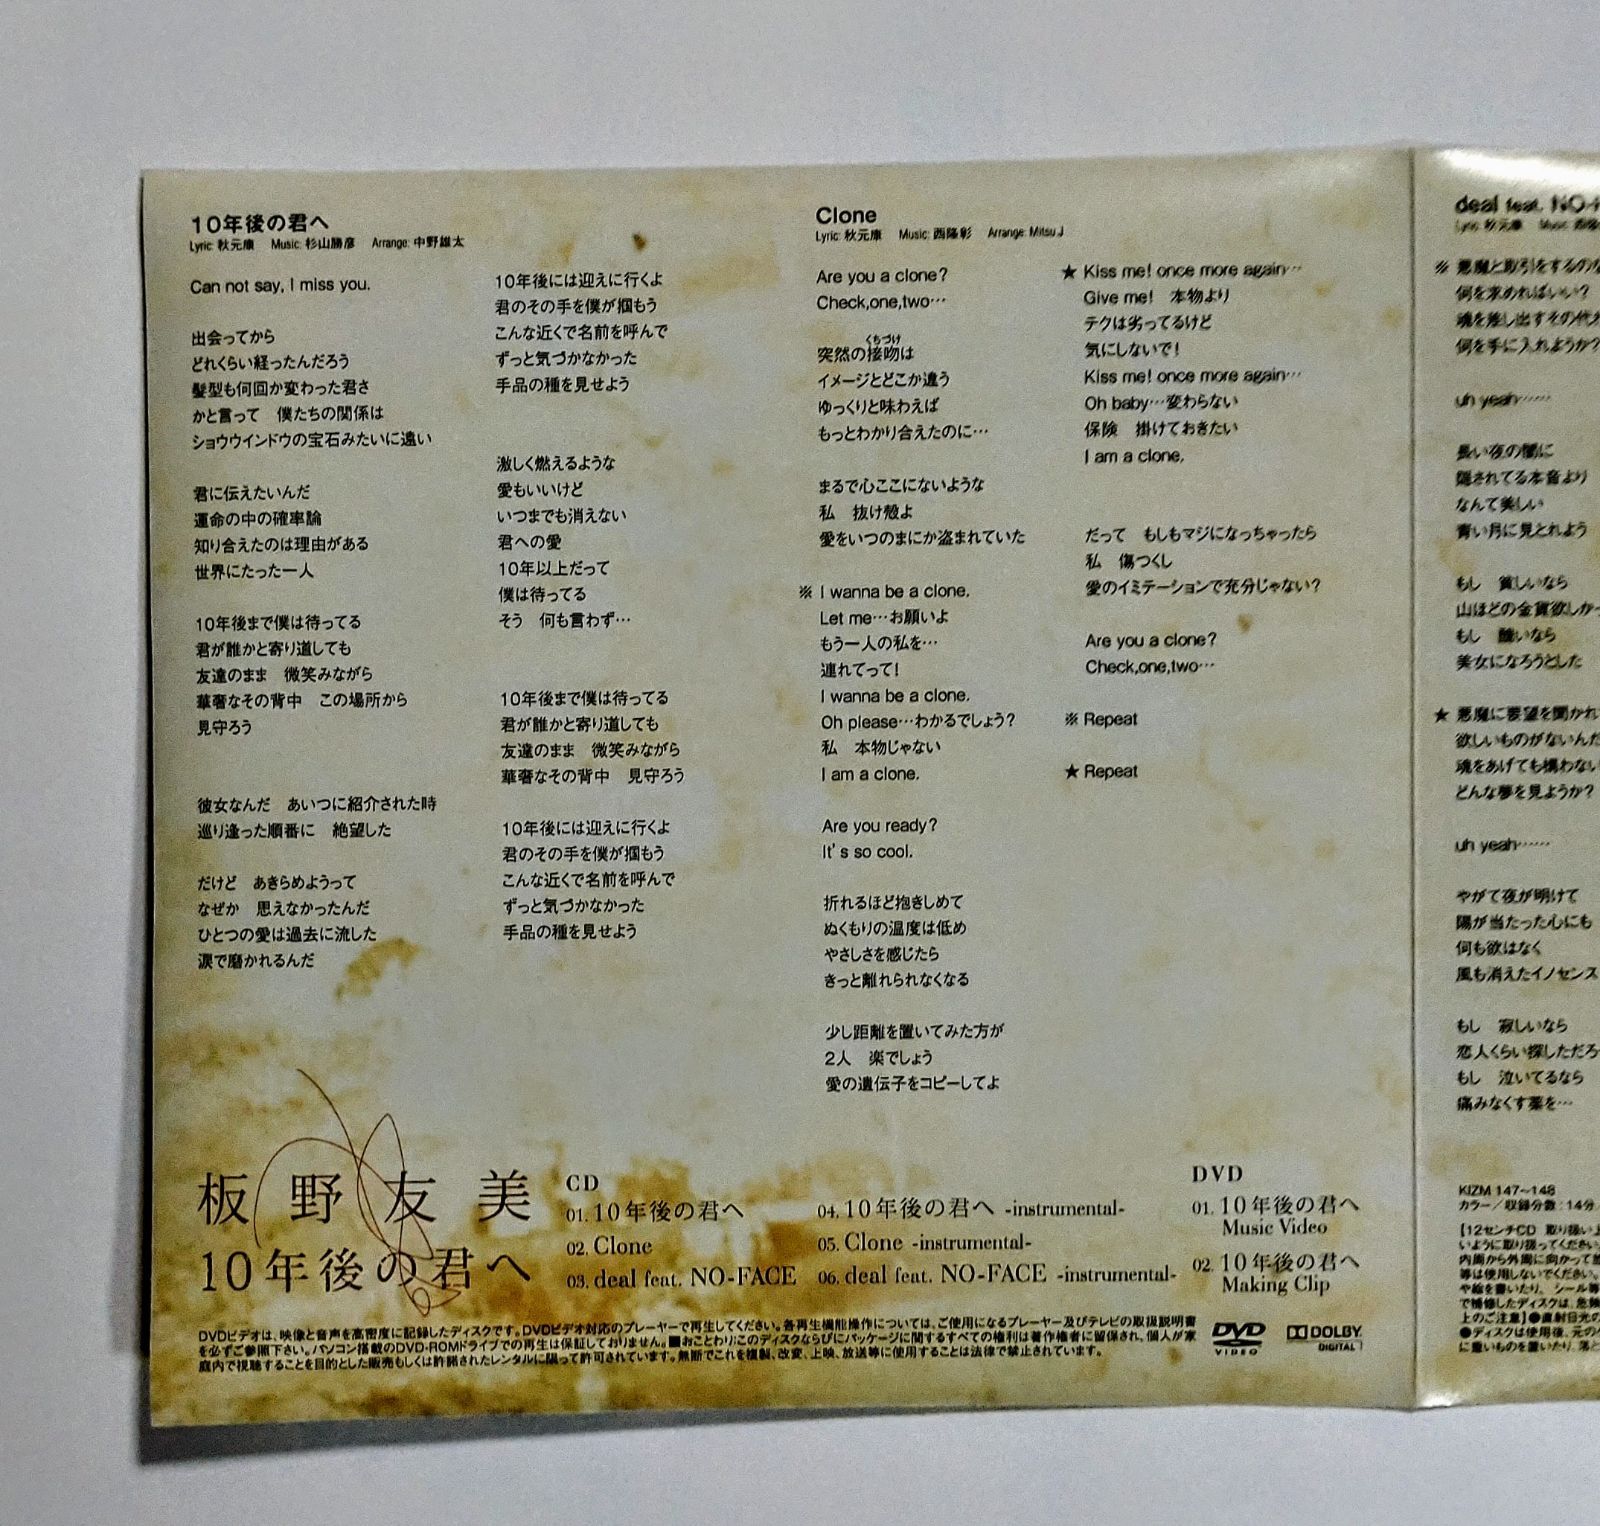 10年後の君へ
Lyric: 秋元康 Music: 杉山勝彦 Arrange: 中野雄太
Can not say, I miss you.
出会ってから
どれくらい経ったんだろう
髪型も何回か変わった君さ
かと言って 僕たちの関係は
ショウウインドウの宝石みたいに遠い
君に伝えたいんだ
運命の中の確率論
知り合えたのは理由がある
世界にたった一人
10年後まで僕は待ってる
君が誰かと寄り道しても
友達のまま 微笑みながら
華奢なその背中 この場所から
見守ろう
彼女なんだ あいつに紹介された時
巡り逢った順番に 絶望した
だけど あきらめようって
なぜか 思えなかったんだ
ひとつの愛は過去に流した
涙で磨かれるんだ
10年後には迎えに行くよ
君のその手を僕が掴もう
こんな近くで名前を呼んで
ずっと気づかなかった
手品の種を見せよう
激しく燃えるような
愛もいいけど
いつまでも消えない
君への愛
10年以上だって
僕は待ってる
そう 何も言わず…
10年後まで僕は待ってる
君が誰かと寄り道しても
友達のまま 微笑みながら
華奢なその背中 見守ろう
10年後には迎えに行くよ
君のその手を僕が掴もう
こんな近くで名前を呼んで
ずっと気づかなかった
手品の種を見せよう
Clone
Lyric: 秋元康 Music: 西隆彰 Arrange: Mitsu.J
Are you a clone?
Check,one,two…
くちづけ
突然の接吻は
イメージとどこか違う
ゆっくりと味わえば
もっとわかり合えたのに…
まるで心ここにないような
私 抜け殻よ
愛をいつのまにか盗まれていた
※ I wanna be a clone.
Let me…お願いよ
もう一人の私を…
連れてって!
I wanna be a clone.
Oh please…わかるでしょう?
私 本物じゃない
I am a clone.
Are you ready?
It's so cool.
折れるほど抱きしめて
ぬくもりの温度は低め
やさしさを感じたら
きっと離れられなくなる
少し距離を置いてみた方が
2人 楽でしょう
愛の遺伝子をコピーしてよ
★ Kiss me! once more again…
Give me! 本物より
テクは劣ってるけど
気にしないで!
Kiss me! once more again…
Oh baby…変わらない
保険 掛けておきたい
I am a clone.
だって もしもマジになっちゃったら
私 傷つくし
愛のイミテーションで充分じゃない?
Are you a clone?
Check,one,two…
※ Repeat
★ Repeat
deal feat. NO-
Lyric: 秋元康 Music: 西隆
※ 悪魔と取引をするのな
何を求めればいい?
魂を差し出すその代
何を手に入れようか?
uh yeah……
長い夜の闇に
隠されてる本音より
なんて美しい
青い月に見とれよう
もし 貧しいなら
山ほどの金貨欲しか
もし 醜いなら
美女になろうとした
★ 悪魔に要望を聞かれ
欲しいものがないんだ
魂をあげても構わない
どんな夢を見ようか?
uh yeah……
やがて夜が明けて
陽が当たった心にも
何も欲はなく
風も消えたイノセンス
もし 寂しいなら
恋人くらい探しただろ
もし 泣いてるなら
痛みなくす薬を…
板野友美
10年後の君へ
CD
01. 10年後の君へ
02. Clone
03. deal feat. NO-FACE
04. 10年後の君へ -instrumental-
05. Clone -instrumental-
06. deal feat. NO-FACE -instrumental-
DVD
01. 10年後の君へ
Music Video
02. 10年後の君へ
Making Clip
DVDビデオは、映像と音声を高密度に記録したディスクです。DVDビデオ対応のプレーヤーで再生してください。各再生機能操作については、ご使用になるプレーヤー及びテレビの取扱説明書
を必ずご参照下さい。パソコン搭載のDVD-ROMドライブでの再生は保証しておりません。■おことわり:このディスクならびにパッケージに関するすべての権利は著作権者に留保され、個人が家
庭内で視聴することを目的とした販売もしくは許諾されたレンタルに限って許可されています。無断でこれを複製、改変、上映、放送等に使用することは法律で禁止されています。
DVD
VIDEO
DOLBY
DIGITAL
KIZM 147~148
カラー/収録分数:14分
【12センチCD 取り扱い上
いように取り扱ってください。
内周から外周に向かって
等は使用しないでください。
や絵を書いたり、シール等
で補修したディスクは、危険
上のご注意】●直射日光の
●ディスクは使用後、元の
に重いものを置いたり、落と